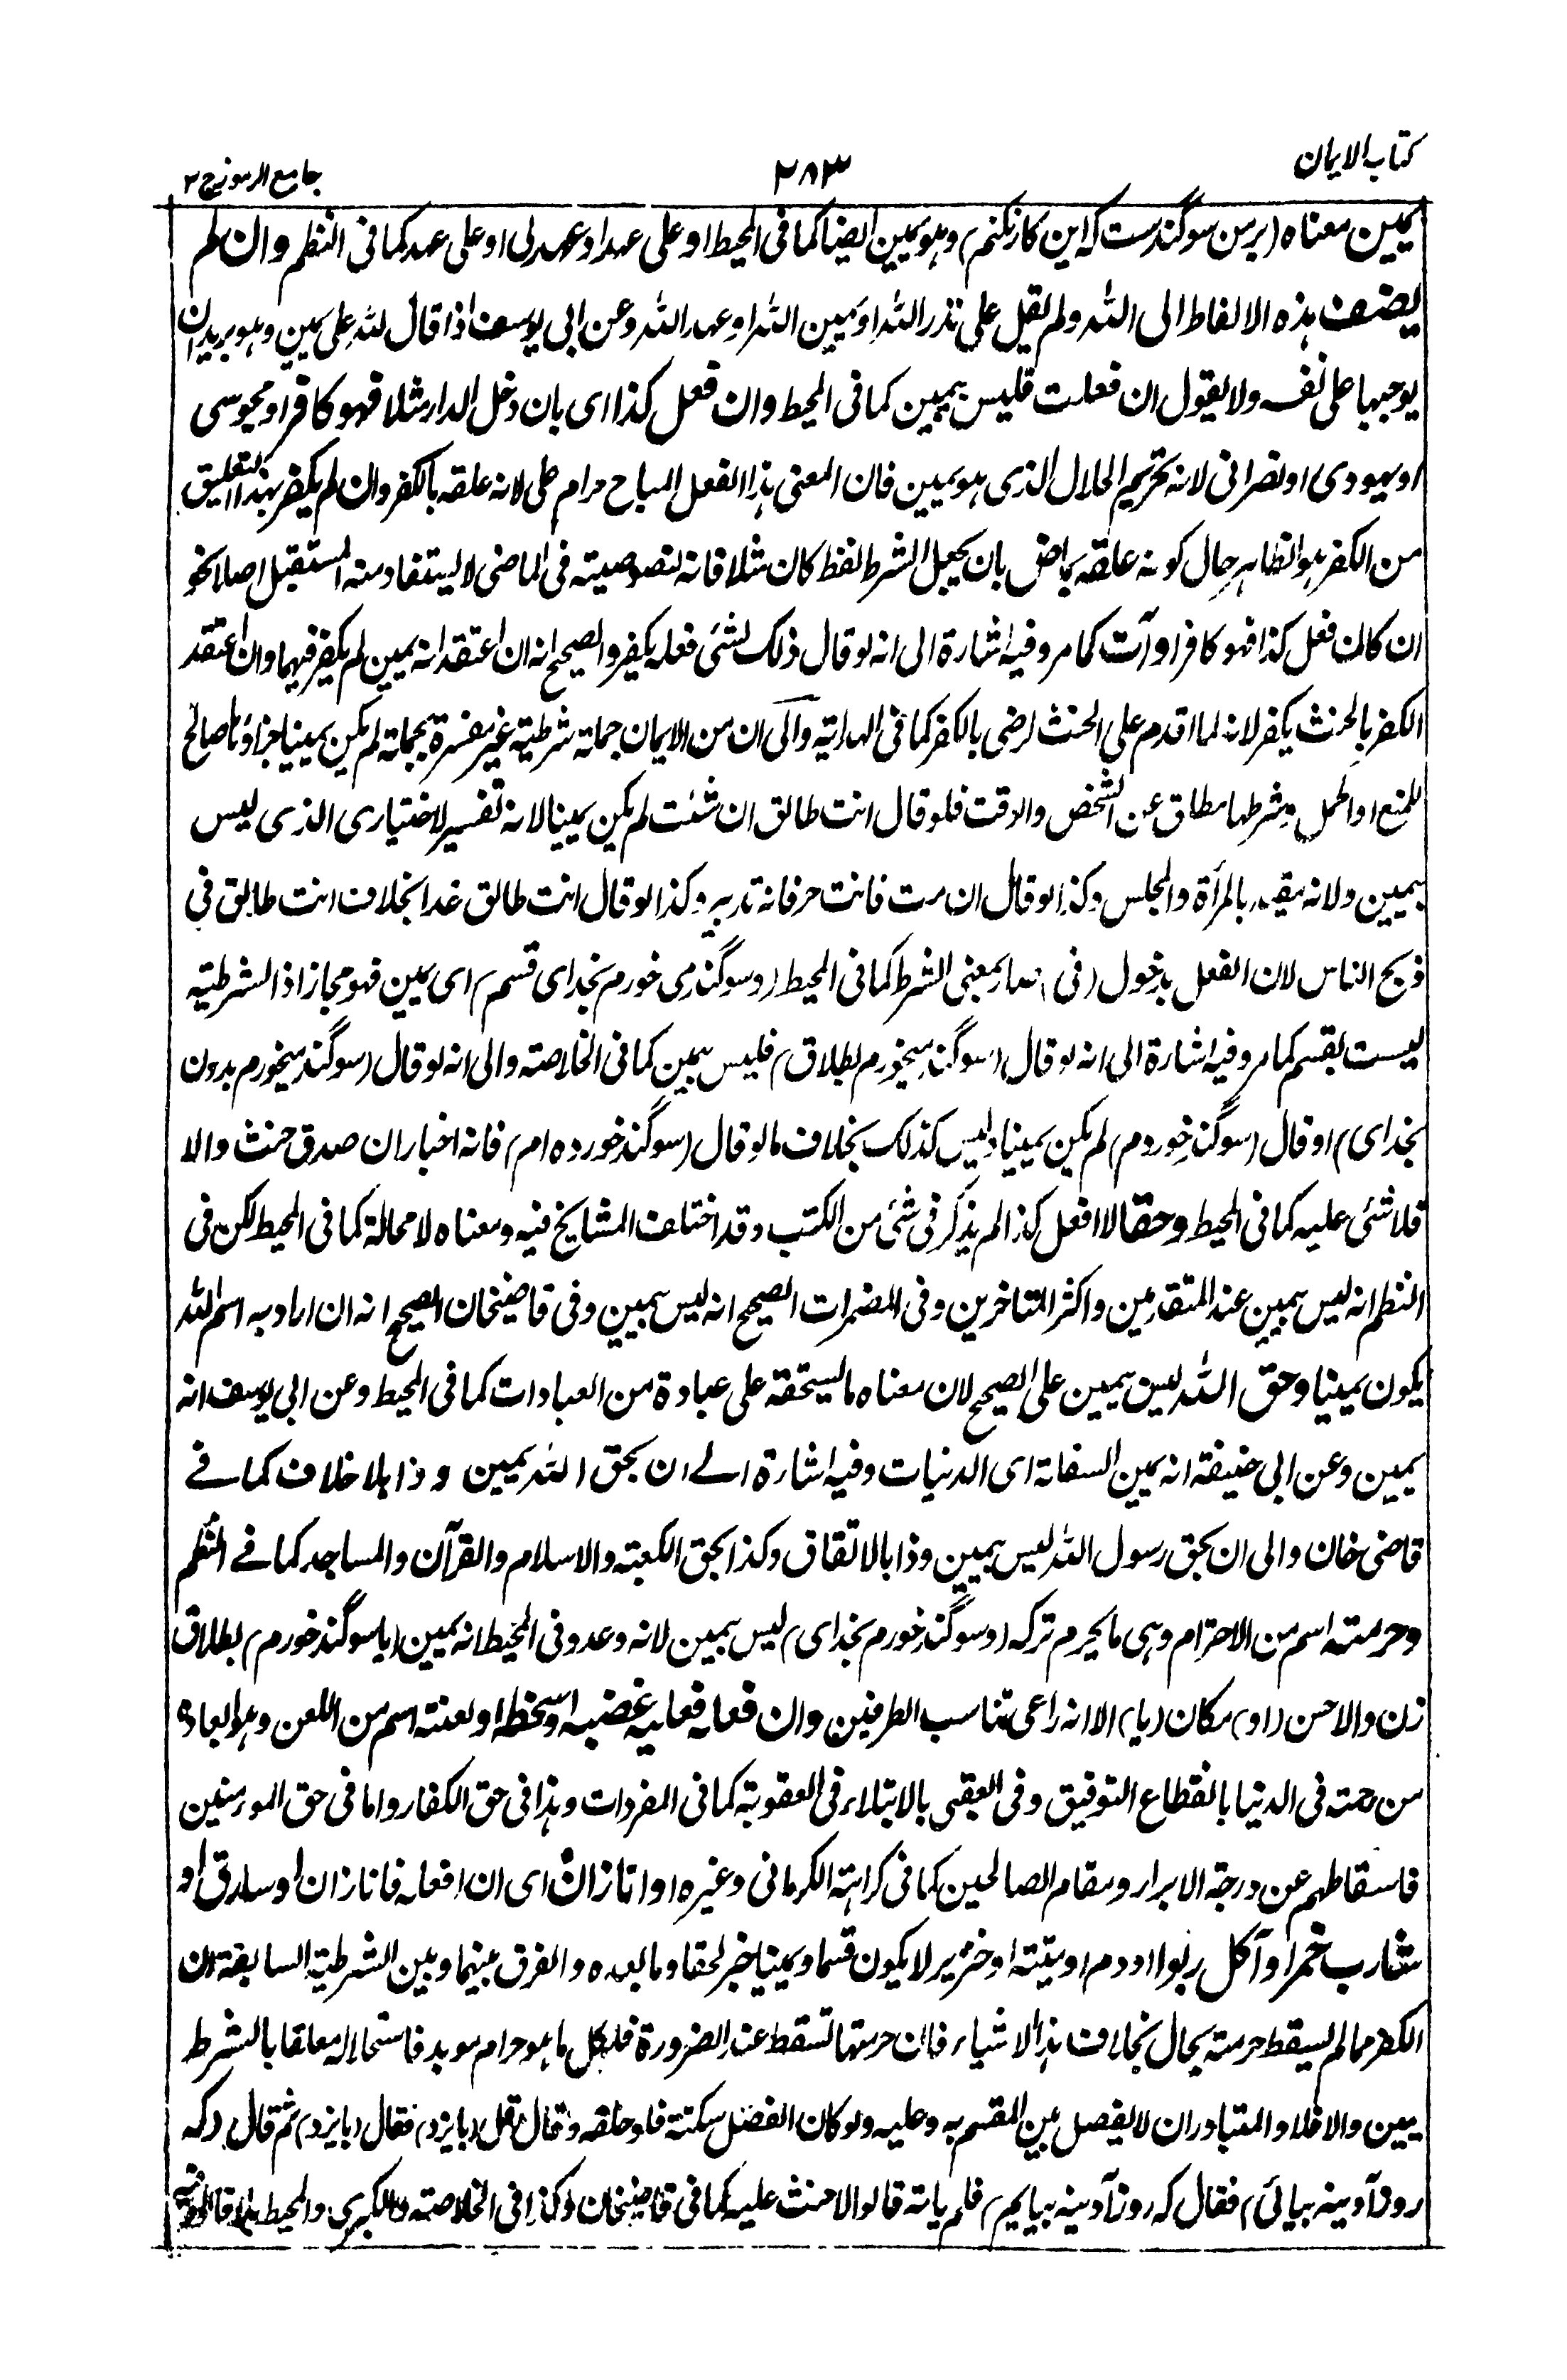 كتاب الايمان
٢٨٣
جامع الرموز ج ٢
يمين معناه (بر من سوگندست كه اين كار نكنم) وهو يمين ايضا كما فى المحيط او على عهد او عهد لى او على عهد كما فى النظم وان لم
يضف هذه الالفاظ الى الله ولم يقل على نذر الله او يمين الله او عهد الله وعن ابى يوسف اذا قال لله على يمين وهو يريد ان
يوجبها على نفسه ولا يقول ان فعلت فليس بيمين كما فى المحيط وان فعل كذا اى بان دخل الدار مثلا فهو كافر او مجوسى
او يهودى او نصرانى لانه تحريم الحلال الذى هو يمين فان المعنى هذا الفعل المباح حرام على لانه علقه بالكفر وان لم يكفر بهذا التعليق
من الكفر هو الظاهر حال كونه علقه بماض بان يجعل الشرط لفظ كان مثلا فانه لنصوصيته فى الماضى لا يستفاد منه المستقبل اصلا نحو
ان كان فعل كذا فهو كافر او آت كما مر وفيه اشارة الى انه لو قال ذلك لشئ فعله يكفر والصحيح انه ان اعتقد انه يمين لم يكفر فيهما وان اعتقد
الكفر بالحنث يكفر لانه لما اقدم على الحنث لرضى بالكفر كما فى الهداية والى ان من الايمان جملة شرطية غير مفسرة بجملة لم يكن يمينا جزاؤنا صالح
للمنع او الحمل وشرطها مطلق عن الشخص والوقت فلو قال انت طالق ان شئت لم يكن يمينا لانه تفسير لاختيارى الذى ليس
بيمين ولانه مقيد بالمرأة والمجلس وكذا لو قال ان مت فانت حر فانه تدبير وكذا لو قال انت طالق غدا بخلاف انت طالق فى
ذبح الناس لان الفعل بدخول (فى) صار بمعنى الشرط كما فى المحيط (وسوگند مى خورم بخداى قسم) اى يمين فهو مجاز اذ الشرطية
ليست بقسم كما مر وفيه اشارة الى انه لو قال (سوگند ميخورم بطلاق) فليس بيمين كما فى الخلاصة والى انه لو قال (سوگند ميخورم بدون
بخداى) او قال (سوگند خوردم) لم يكن يمينا وليس كذلك بخلاف ما لو قال (سوگند خورده ام) فانه اخبار ان صدق حنث والا
فلا شئ عليه كما فى المحيط وحقا لا افعل كذا لم يذكر فى شئ من الكتب وقد اختلف المشايخ فيه ومعناه لا محالة كما فى المحيط لكن فى
النظم انه ليس بيمين عند المتقدمين واكثر المتاخرين وفى المضمرات الصحيح انه ليس بيمين وفى قاضيخان الصحيح انه ان اراد به اسم الله
يكون يمينا وحق الله ليس بيمين على الصحيح لان معناه ما يستحقه على عبادة من العبادات كما فى المحيط وعن ابى يوسف انه
يمين وعن ابى حنيفة انه يمين السفلة اى الدنيات وفيه اشارة الے ان بحق الله يمين وذا بلا خلاف كما فے
قاضى خان والى ان بحق رسول الله ليس بيمين وذا بالاتفاق وكذا بحق الكعبة والاسلام والقرآن والمساجد كما فے النظم
وحرمته اسم من الاحترام وهى ما يحرم تركه (وسوگند خورم بخداى) ليس بيمين لانه وعد وفى المحيط انه يمين (يا سوگند خورم) بطلاق
زن والاحسن (او) مكان (يا) الا انه راعى تناسب الطرفين وان فعله فعليه غضبه او سخطه او لعنته اسم من اللعن وهو ابعاده
من رحمته فى الدنيا بانقطاع التوفيق وفى العقبى بالابتلاء فى العقوبة كما فى المفردات وهذا فى حق الكفار واما فى حق المومنين
فاسقاطهم عن درجة الابرار ومقام الصالحين كما فى كراهة الكرمانى وغيره او انا زان اى ان افعله فانا زان او سارق او
شارب خمر او آكل ربوا او دم او ميتة او خنزير لا يكون قسما ويمينا خبر لحقا وما بعده والفرق بينهما وبين الشرطية السابقة ان
الكفر مما لم يسقط حرمته بحال بخلاف هذه الاشياء فان حرمتها تسقط عند الضرورة فلكل ما هو حرام موبد فاستحلاله معلقا بالشرط
يمين والا فلا والمتبادر ان لا يفصل بين المقسم به وعليه ولو كان الفصل سكتة فلو حلفه وقال قل (بايزد) فقال (بايزد) ثم قال (كه
روز آدينه بيائى) فقال كه روز آدينه بيايم) فلم ياته قالوا لا حنث عليه كما فى قاضيخان وكذا فى الخلاصة والكبرى والمحيط